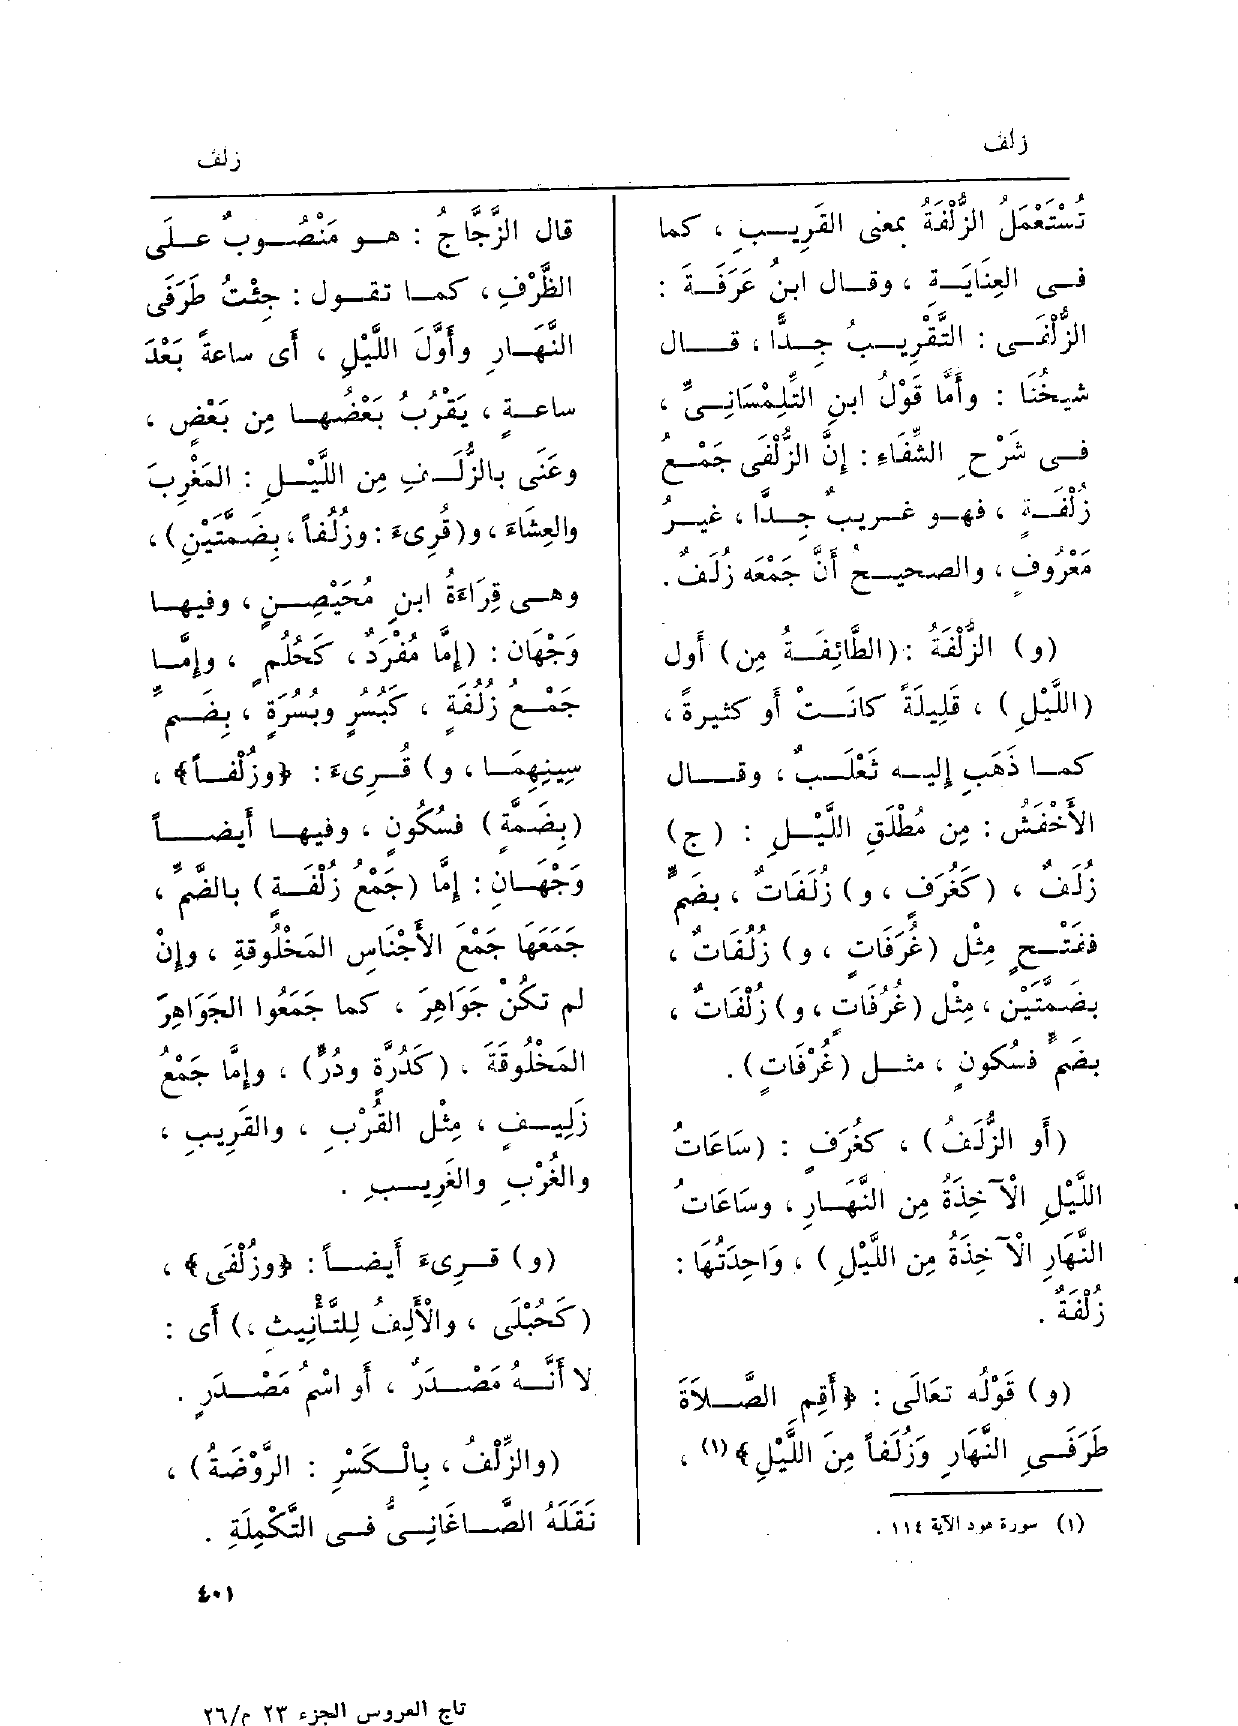 زلف
زلف
تُسْتَعْمَلُ الزُّلْفَةُ بمعنى القَرِيبِ ، كما
فى العِنَايَةِ ، وقال ابنُ عَرَفَةَ :
الزُّلْفَى : التَّقْرِيبُ جِدًّا ، قال
شيخُنَا : وأَمَّا قَوْلُ ابنِ التِّلِمْسَانِىِّ ،
فى شَرْحِ الشِّفَاءِ : إِنَّ الزُّلْفَى جَمْعُ
زُلْفَةٍ ، فهو غريبٌ جِدًّا ، غيرُ
مَعْرُوفٍ ، والصحيحُ أَنَّ جَمْعَه زُلَفٌ .
(و) الزُّلْفَةُ : (الطَّائِفَةُ مِن) أَول
(اللَّيْلِ) ، قَلِيلَةً كانَتْ أَو كثيرةً ،
كما ذَهَب إِليه ثَعْلَبٌ ، وقال
الأَخْفَشُ : مِن مُطْلَقِ اللَّيْلِ : (ج)
زُلَفٌ ، (كَغُرَفٍ ، و) زُلَفَاتٌ ، بضَمٍّ
ففَتْحٍ مِثْل (غُرَفَاتٍ ، و) زُلُفَاتٌ ،
بضَمَّتَيْن ، مِثْل (غُرُفَاتٍ ، و) زُلْفَاتٌ ،
بضَمٍّ فسُكونٍ ، مثل (غُرْفَاتٍ) .
(أَو الزُّلَفُ) ، كغُرَفٍ : (سَاعَاتُ
اللَّيْلِ الْآخِذَةُ مِن النَّهَارِ ، وسَاعَاتُ
النَّهَارِ الْآخِذَةُ مِن اللَّيْلِ) ، وَاحِدَتُهَا :
زُلْفَةٌ .
(و) قَوْلُه تعَالَى : ﴿أَقِمِ الصَّلاَةَ
طَرَفَىِ النَّهَارِ وَزُلَفاً مِنَ اللَّيْلِ﴾(١) ،
(١) سورة هود الآية ١١٤ .
قال الزَّجَّاجُ : هو مَنْصُوبٌ علَى
الظَّرْفِ ، كما تقول : جِئْتُ طَرَفَىِ
النَّهَارِ وأَوَّلَ اللَّيْلِ ، أَى ساعةً بَعْدَ
ساعةٍ ، يَقْرُبُ بَعْضُها مِن بَعْضٍ ،
وعَنَى بالزُّلَفِ مِن اللَّيْلِ : المَغْرِبَ
والعِشَاءَ ، و(قُرِىءَ : وزُلُفاً ، بِضَمَّتَيْنِ) ،
وهى قِرَاءَةُ ابنِ مُحَيْصِنٍ ، وفيها
وَجْهَان : (إِمَّا مُفْرَدٌ ، كَحُلُمٍ ، وإِمَّا
جَمْعُ زُلُفَةٍ ، كَبُسُرٍ وبُسُرَةٍ ، بِضَمِّ
سِينِهِمَا ، و) قُرِىءَ : ﴿وزُلْفاً﴾ ،
(بِضَمَّةٍ) فسُكُونٍ ، وفيها أَيضاً
وَجْهَانِ : إِمَّا (جَمْعُ زُلْفَةٍ) بالضَّمِّ ،
جَمَعَهَا جَمْعَ الأَجْنَاسِ المَخْلُوقةِ ، وإِنْ
لم تكُنْ جَوَاهِرَ ، كما جَمَعُوا الجَوَاهِرَ
المَخْلُوقَةَ ، (كَدُرَّةٍ ودُرٍّ) ، وإِمَّا جَمْعُ
زَلِيفٍ ، مِثْل القُرْبِ ، والقَرِيبِ ،
والغُرْبِ والغَرِيبِ .
(و) قرِىءَ أَيضاً : ﴿وزُلْفَى﴾ ،
(كَحُبْلَى ، والْأَلِفُ لِلتَّأْنِيثِ ،) أَى :
لا أَنَّهُ مَصْدَرٌ ، أَو اسْمُ مَصْدَرٍ .
(والزِّلْفُ ، بِالْكَسْرِ : الرَّوْضَةُ) ،
نَقَلَهُ الصَّاغَانِىُّ فى التَّكْمِلَةِ .
٤٠١
تاج العروس الجزء ٢٣ م/٢٦